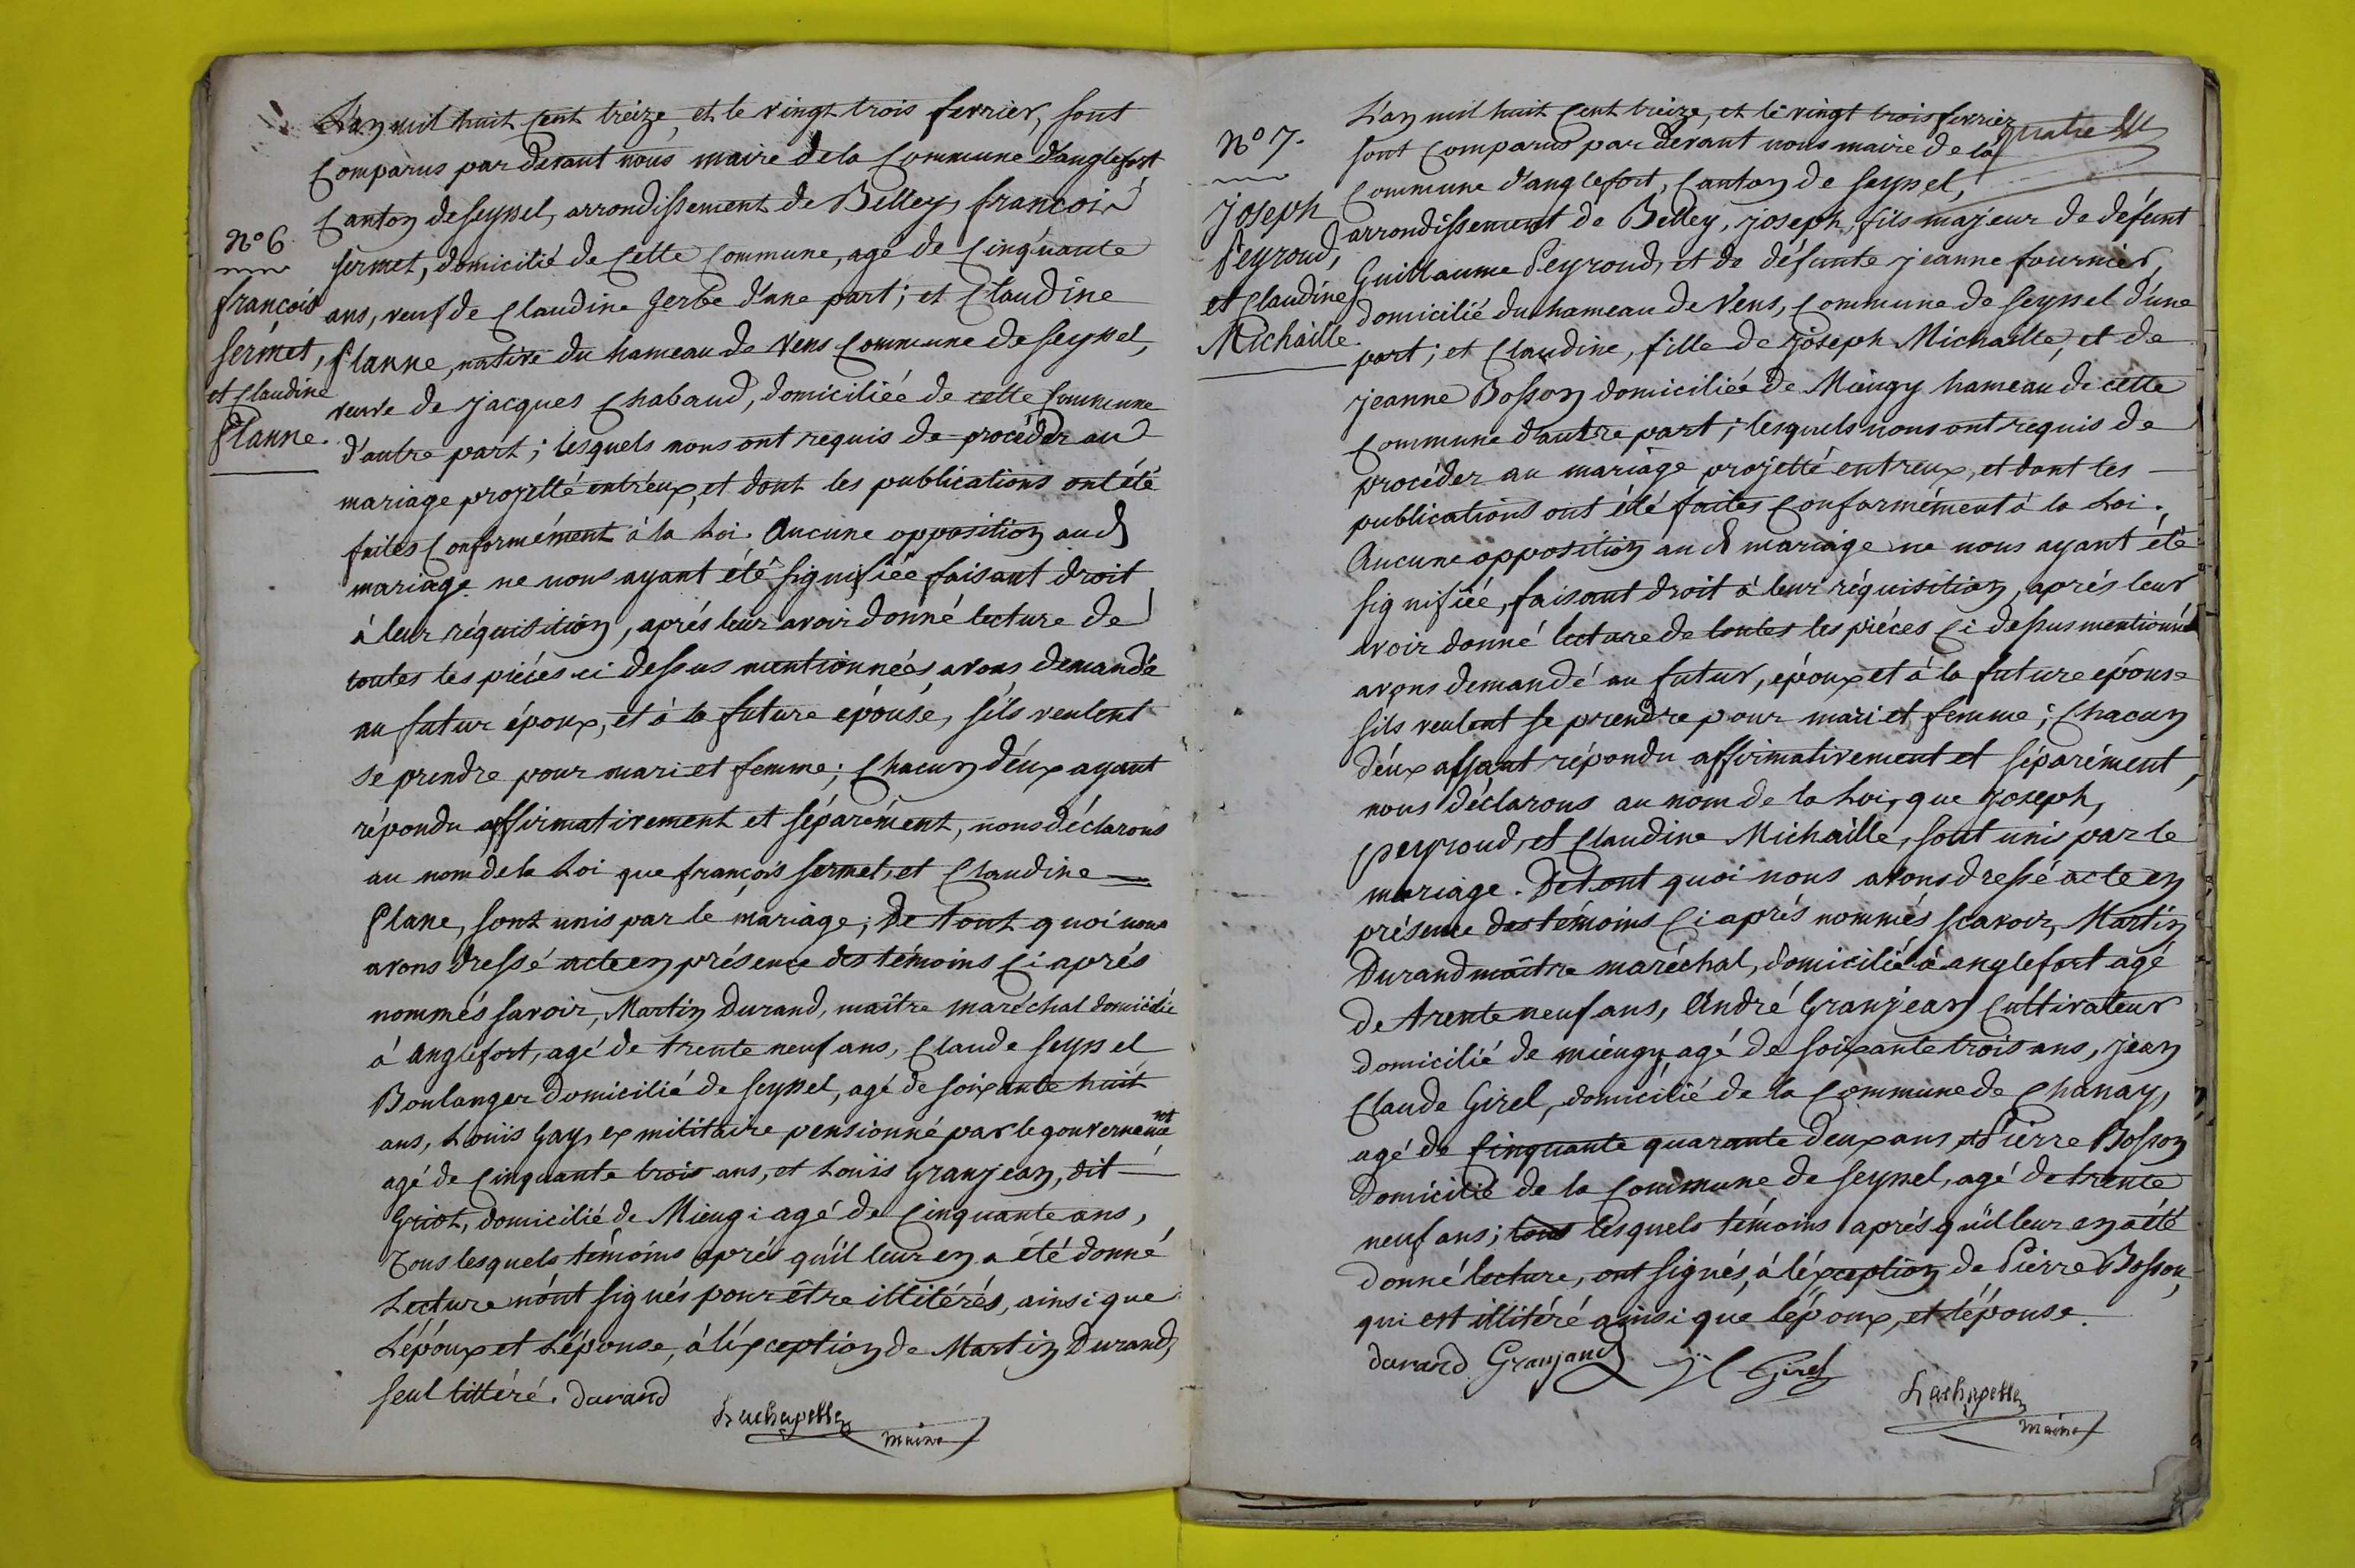 L'an mil huit cent treize, et le vingt trois fevrier, sont
comparus par devant nous maire dela commune d'anglefort
canton de seyssel, arrondissement de Belley, francois
sermet, domicilié de cette commune, agé de cinquante
ans, veuf de Claudine Gerbe d'une part; et Claudine
Planne, native du hameau de Vens commune de seyssel,
veuve de jacques Chabaud, domiciliée de cette commune
d'autre part; lesquels nous ont requis de procéder au
mariage projetté entr'eux, et dont les publications ont été
faites conformément à la Loi. Aucune opposition aud
mariage ne nous ayant été signifiée faisant droit
à leur réquisition, aprés leur avoir donné lecture de
toutes les piéces ci dessus mentionnées, avons demandé
au futur époux, et à la future épouse, s'ils veulent
se prendre pour mari et femme; chacun d'eux ayant
répondu affirmativement et séparément, nous déclarons
au nom dela Loi que françois sermet, et Claudine
Plane, sont unis par le mariage; De tout quoi nous
avons dressé acte en présence des témoins ci aprés
nommés savoir, Martin Durand, maître maréchal domicilié
à anglefort, agé de trente neuf ans, Claude seyssel
Boulanger domicilié de seyssel, agé de soixante huit
ans, Louis Gay, ex militaire pensionné par le gouvernement
agé de cinquante trois ans, et Louis Granjean, dit
Griot, domicilié de Miengi agé de cinquante ans,
Tous lesquels témoins aprés qu'il leur en a été donné
Lecture n'ont signés pour être illitérés, ainsi que
L'époux et L'épouse, à l'exception de Martin Durand,
seul littéré. durand
Lachapelle
maire
N° 6
françois
sermet,
et Claudine
Planne.
quatre
L'an mil huit cent treize, et le vingt trois fevrier
sont comparus par devant nous maire de la
commune d'anglefort, canton de seyssel,
arrondissement de Belley, joseph, fils majeur de défunt
Guillaume Peyroud, et de défunte jeanne fournier,
domicilié du hameau de Vens, commune de seyssel d'une
part; et Claudine, fille de joseph Michaille, et de
jeanne Bosson domiciliée de Miengy hameau de cette
commune d'autre part; lesquels nous ont requis de
procéder au mariage projetté entreux, et dont les
publications ont été faites conformément à la Loi.
Aucune opposition aud mariage ne nous ayant été
signifiée, faisant droit à leur réquisition, aprés leur
avoir donné lecture de toutes les piéces ci dessus mentionnés
avons demandé au futur, époux et à la future epouse
s'ils veulent se prendre pour mari et femme; chacun
d'eux ayant répondu affirmativement et séparément,
nous déclarons au nom de la Loi, que joseph,
peyroud, et Claudine Michaille, sont unis par le
mariage. De tout quoi nous avons dressé acte en
présence des témoins ci aprés nommés scavoir, Martin
Durand maître maréchal, domicilié à anglefort agé
de trente neuf ans, André Granjean Cultivateur
domicilié de miengy, agé de soixante trois ans, jean
Claude Girel, domicilié de la commune de Chanay,
agé de cinquante quarante deux ans, et Pierre Bosson
domicilié de la commune de seyssel, agé de trente
neuf ans; tous lesquels témoins aprés qu'il leur en a été
donné lecture, ont signés, à l'éxception de Pierre Bosson,
qui est illitéré ainsi que l'époux, et l'épouse.
durand Granjand JC Girel
Lachapelle
maire
N° 7.
joseph
Peyroud,
et Claudine
Michaille